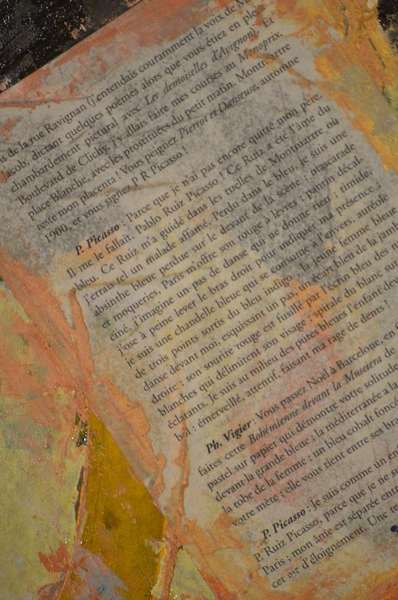 de la rue Ravignan (j'entendais couramment la voix de M
Jacob, dictant quelques poèmes alors que vous étiez en plein
chambardement pictural avec Les demoiselles d'Avignon). Et
Boulevard de Clichy, j'y allais faire mes courses au Monoprix,
place Blanche, avec les prostituées du petit matin. Montmartre
mon placenta ! Vous peignez Pierrot et Danseuse, automne
1900, et vous signez P. R. Picasso.
P. Picasso : Parce que je n'ai pas encore quitté mon père.
Il me le fallait, Pablo Ruiz Picasso ! Ce Ruiz a été l'ami du
bleu. Ce Ruiz m'a guidé dans les ruelles de Montmartre où
j'errais tel un malade affamé. Perdu dans le bleu, je suis une
absinthe bleue perdue sur le devant de la scène : mascarade
et moqueries. Paris m'offre son rouge à lever : pantin décalé,
j'imagine un pas de danse qui ne donne rien ; timide,
j'ose à peine lever le bras droit pour indiquer ma présence ;
je suis une chandelle bleue qui se consume à l'envers, auréolé
de trois points sortis du bleu indigo. La jeune femme bleue
danse devant moi, esquissant un pas, un arc bien de la jambe
droite ; son sourire rouge est fusillé par l'écrin bleu des
blanches qui délimitent son visage : spirale du blanc sur
éclatants. Je suis au milieu des poses bleues l'enfant des
bois : émerveillé, attentif, faisant ma rage de dents !
Ph. Vigier : Vous passez Noël à Barcelone, en
faites cette Bohémienne devant la Musciara de
pastel sur papier qui démontre votre solitude
devant la grande bleue ; la méditerranée a la
la robe de la femme : un bleu cobalt foncé
votre mère : elle vous tient entre ses bras
P. Picasso : Je suis comme un en
P. Ruiz Picasso, parce que je ne
Paris ; mon âme est séparée entre
cet air d'éloignement. Une